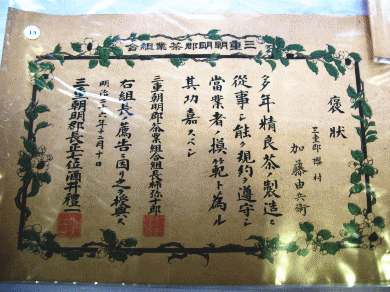 10
三重朝明郡茶業組合
褒状
三重郡櫻村
加藤由兵衛
多年精良茶ノ製造ニ
從事シ能ク規約ヲ遵守シ
當業者ノ模範ト為ル
其功嘉スベシ
三重朝明郡茶業組合組長
右組長ノ告ニ因リ之ヲ授與ス
明治二十六年十二月十日
三重朝明郡長正七位酒井禮一